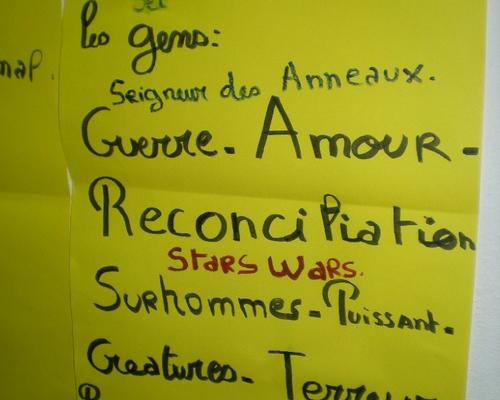 les gens:
Seigneur des Anneaux.
Guerre. Amour -
Reconciliation
Stars Wars.
Surhommes - Puissant -
Creatures. Terreur